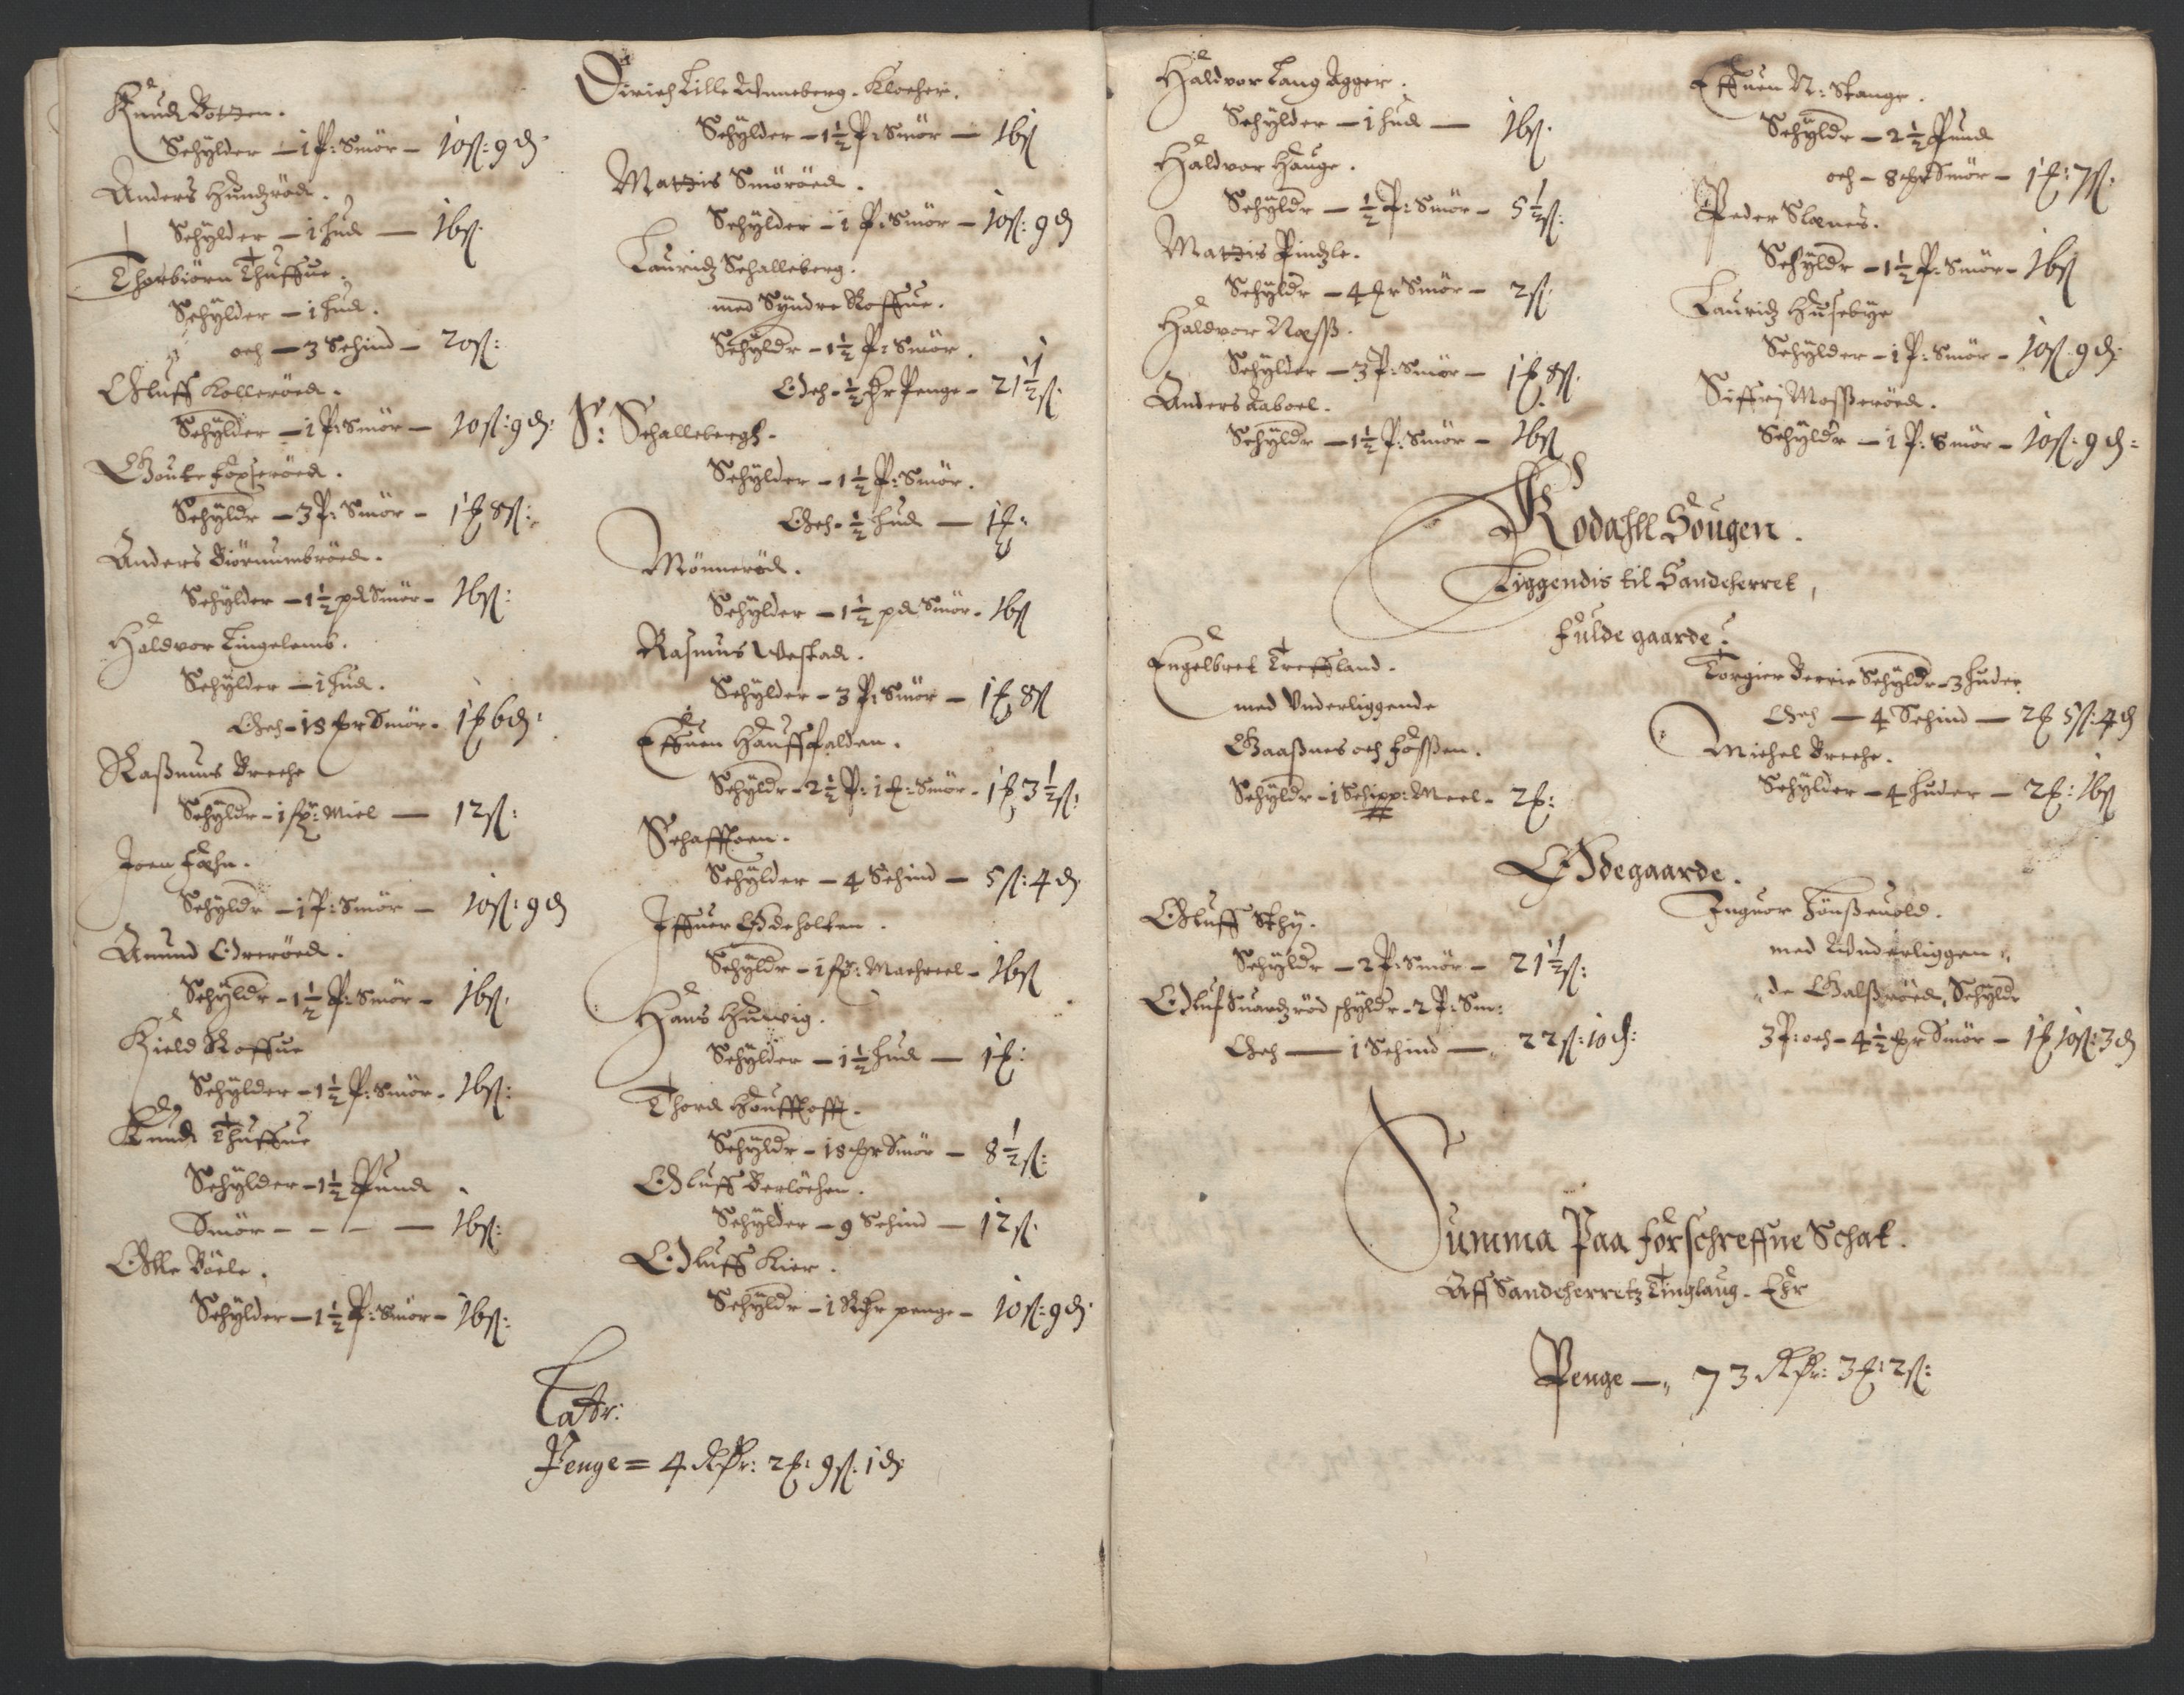 Knud Botten.
Schylder — 1 P: Smör — 10 ß: 9 d.
Anders Hundzröd.
Schylder — 1 hud — 16 ß.
Thorbiörn Thuffue.
Schylder — 1 hud.
och — 3 Schind — 20 ß:
Oluff Kolleröed.
Schylder — 1 P: Smör — 10 ß: 9 d:
Goute Foxeröed.
Schyldr — 3 P: Smör — 1 f 8 ß:
Anders Biörnumbröed.
Schylder — 1½ pd Smör — 16 ß:
Haldvor Lingelemb.
Schylder — 1 hud.
Och — 18 fr Smör — 1 f 6 d:
Raßmus Breche
Schyldr — 1 fr: Miel — 12 ß:
Joen
Schyldr — 1 P: Smör — 10 ß: 9 d
Amund Oreröed.
Schyldr — 1½ P: Smör — 16 ß.
Kield Roffue
Schylder — 1½ P: Smör — 16 ß:
Knud Thuffue
Schylder — 1½ Pund
Smör — — — — 16 ß:
Olle Böele.
Schylder — 1½ P: Smör — 16 ß:
Dirich Lille Unneberg. Klocher.
Schylder — 1½ P: Smör — 16 ß
Mattis Smöröed.
Schylder — 1 P: Smör — 10 ß: 9 d
Lauridz Schalleberg.
med Syndre Roffue.
Schyldr — 1½ P: Smör.
Och — ½ Penge — 21½ ß.
S: Schallebergh.
Schylder — 1½ P: Smör.
Och — ½ hud — 1 f:
Mönneröd.
Schylder — 1½ pd Smör — 16 ß
Rasmus Vestad.
Schylder — 3 P: Smör — 1 f 8 ß
Effuen Hauffsfalden.
Schyldr — 2½ P: 1 f: Smör — 1 f 3½ ß:
Schaffloen.
Schylder — 4 Schind — 5 ß: 4 d.
Iffuer Ödeholten.
Schyldr — 1 fr: Machreel — 16 ß
Hans Huuig.
Schylder — 1½ hud — 1 f:
Thord Houffloff.
Schyldr — 18 fr Smör — 8½ ß:
Oluff Berlöchen.
Schylder — 9 Schind — 12 ß.
Oluff Kier.
Schyldr — 1 penge — 10 ß: 9 d.
Latr:
Penge = 4 Rdr: 2 f: 9 ß: 1 d
Haldvor Lang Agger.
Schylder — 1 hud — 16 ß.
Haldvor Hauge.
Schyldr — ½ P: Smör — 5½ ß:
Mattis Pindzle.
Schyldr — 4 fr Smör — 2 ß.
Haldvor Næss.
Schylder — 3 P: Smör — 1 f 8 ß.
Anders Aaboel.
Schyldr — 1½ P: Smör — 16 ß
Effuen N: Stange.
Schyldr — 2½ Pund
och — 8 fr Smör — 1 f: 7 ß.
Peder Slænes.
Schyldr — 1½ P: Smör — 16 ß
Lauridz Husebye
Schylder — 1 P: Smör — 10 ß. 9 d:
Siffrij Mosseröed.
Schyldr — 1 P: Smör — 10 ß: 9 d:
Kodahll Sougen.
Liggendis til Sandeherret,
Fulde gaarde.
Engelbret Treffland.
med Underliggende
Gaaßnes och Foßßen.
Schyldr — 1 Schipp: Meel — 2 f:
Torgier Berrie Schyldr — 3 huder
Och — 4 Schind — 2 f 5 ß: 4 d
Michel Breche.
Schylder — 4 huder — 2 f: 16 ß
Ödegaarde.
Oluff Sthy.
Schyldr — 2 P: Smör — 21½ ß:
Oluf Suardzröd schyldr — 2 P: Sm:
Och — 1 Schind — 22 ß: 10 d:
Inguor Fönßeuold.
med Underliggen„
„de Galßröed, Schyldr
3 P: och — 4½ fr Smör — 1 f 10 ß: 3 d
Summa Paa forschreffne Schat.
Aff Sandeherretz Tinglaug. Ehr
Penge —„ 73 Rdr: 3 f: 2 ß: